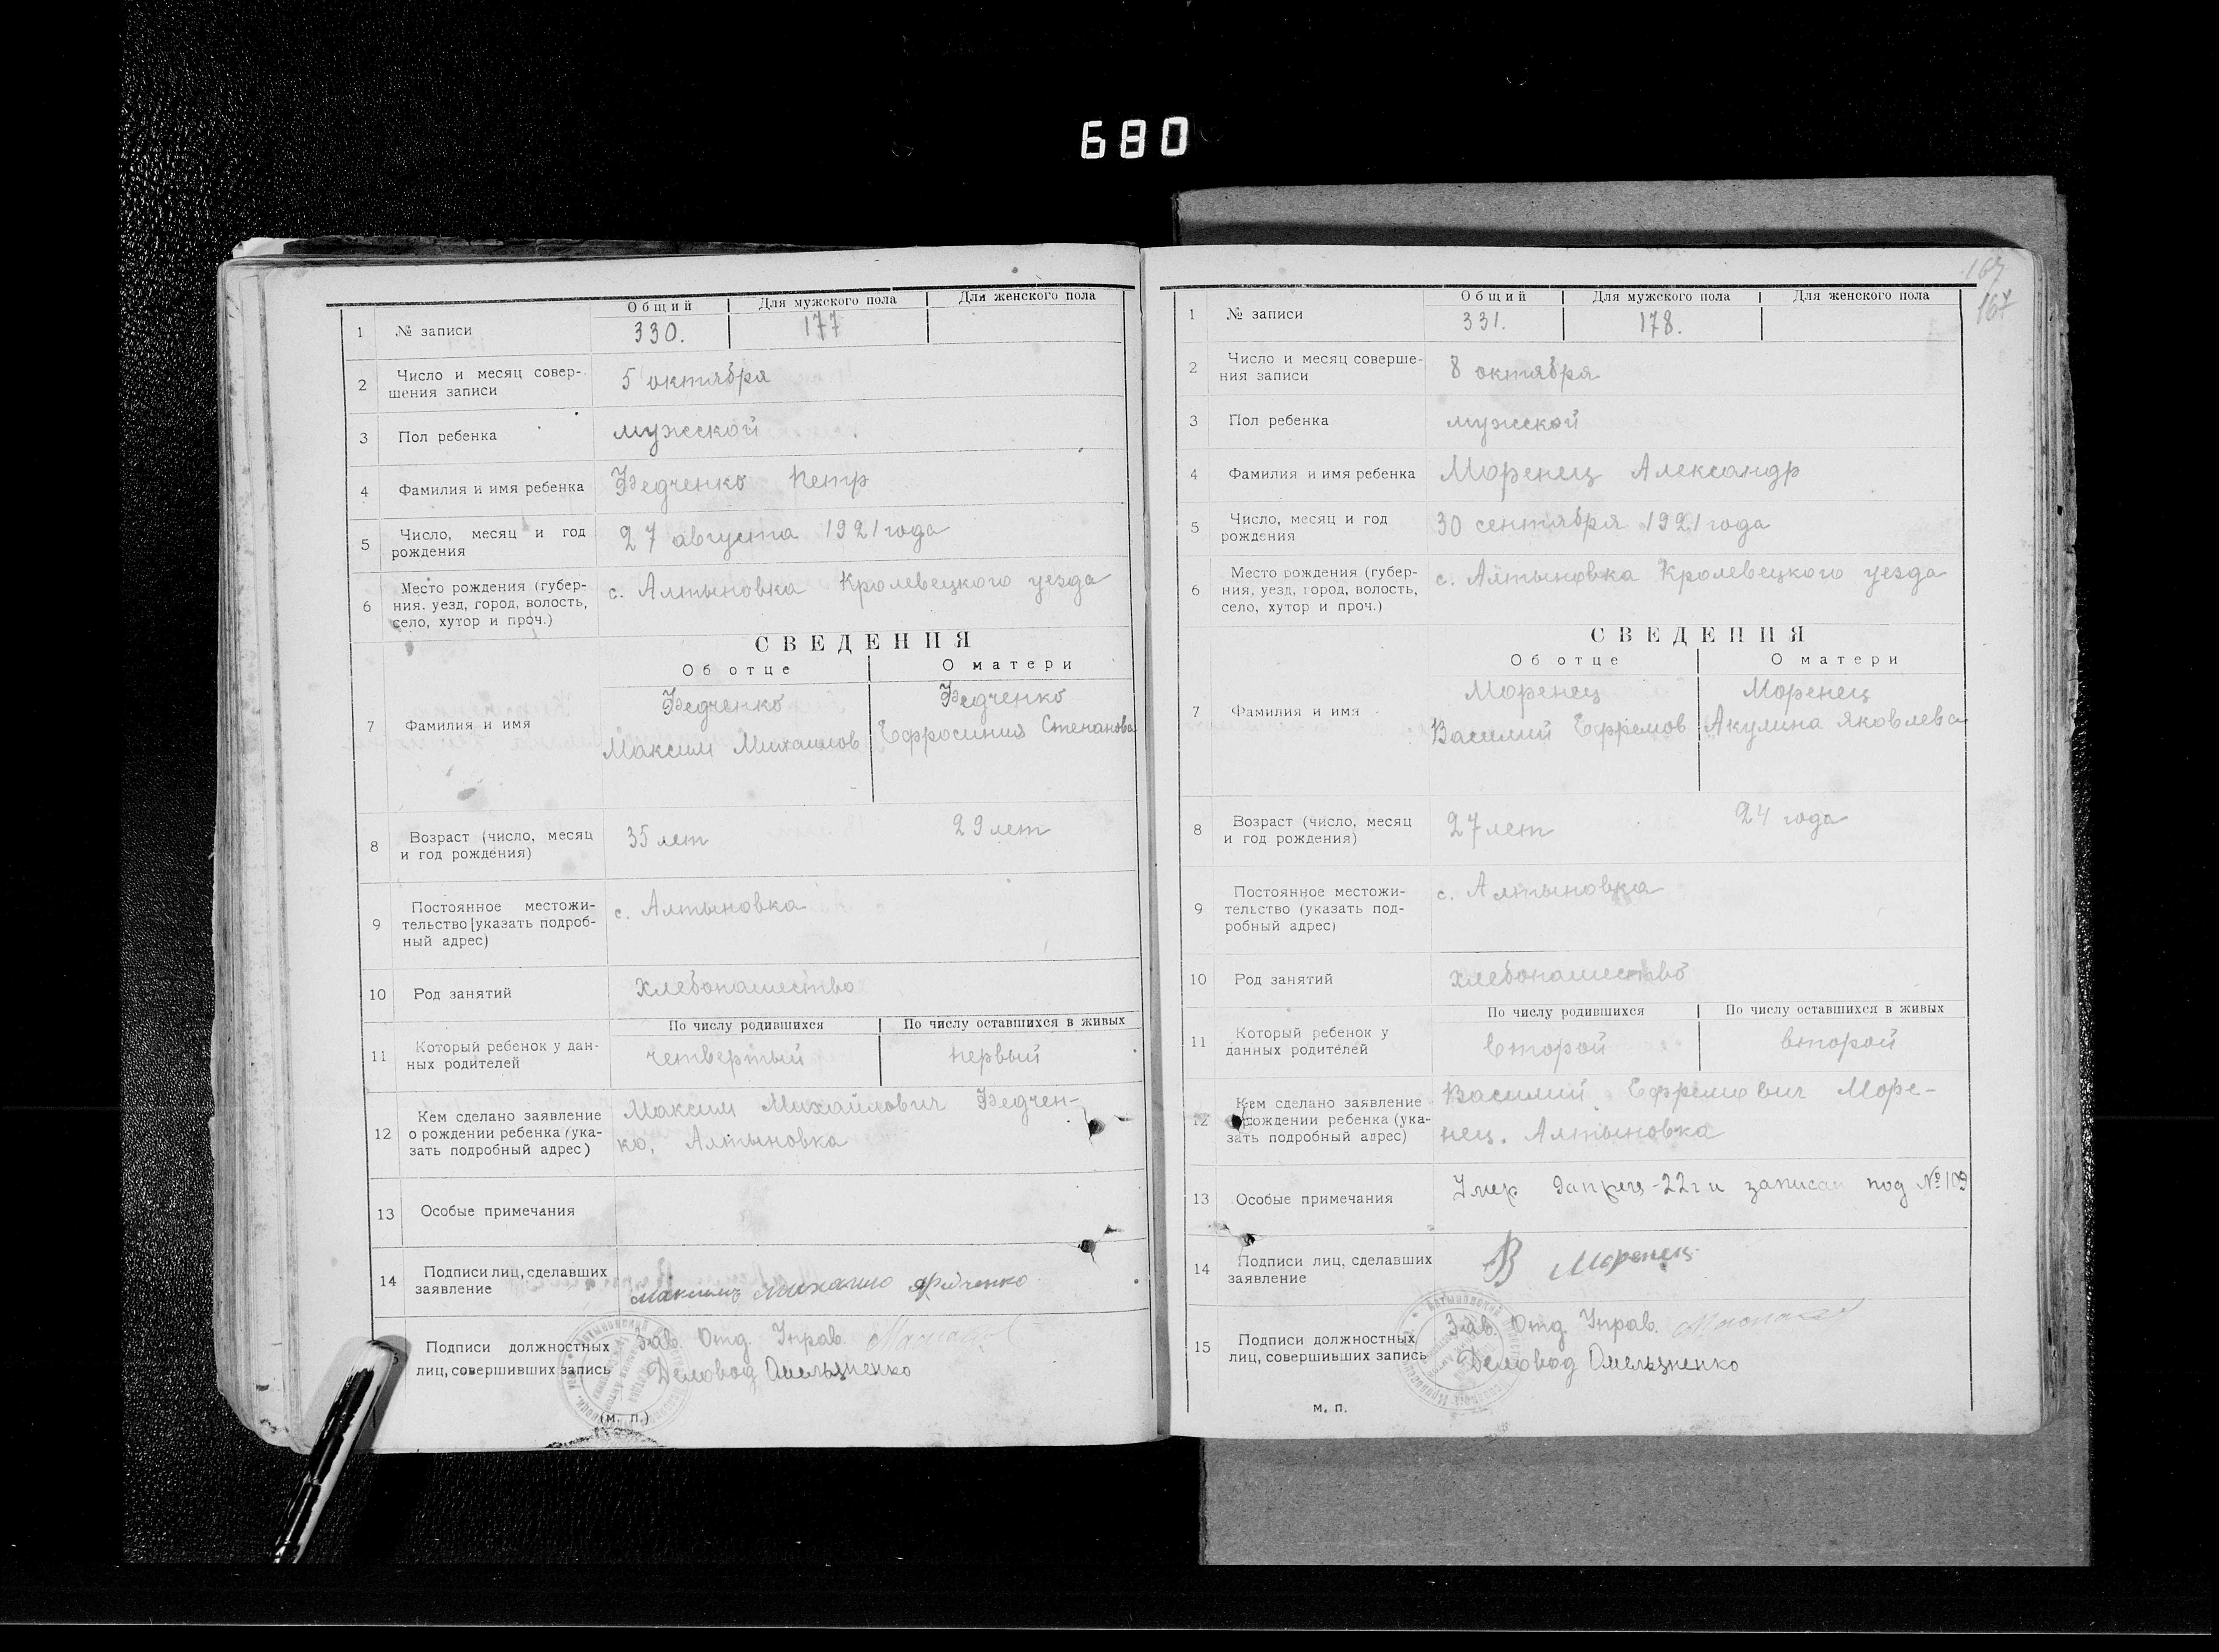 680
Общий Для мужского пола Для женского пола
1 № записи 330. 177
2 Число и месяц совер-
шения записи 5 октября
3 Пол ребенка мужской
4 Фамилия и имя ребенка Федченко Петр
5 Число, месяц и год
рождения 27 августа 1921 года
6 Место рождения (губер-
ния. уезд, город, волость,
село, хутор и проч.) с. Алтыновка Кролевецкого уезда
СВЕДЕНИЯ
Об отце О матери
7 Фамилия и имя Федченко Федченко
Максим Михаилов Ефросиния Степанова
8 Возраст (число, месяц
и год рождения) 35 лет 29 лет
9 Постоянное местожи-
тельство [указать подроб-
ный адрес) с. Алтыновка
10 Род занятий хлебопашество
По числу родившихся По числу оставшихся в живых
11 Который ребенок у дан-
ных родителей четвертый первый
12 Кем сделано заявление
о рождении ребенка (ука-
зать подробный адрес) Максим Михайлович Федчен-
ко, Алтыновка
13 Особые примечания
14 Подписи лиц, сделавших
заявление Михаило Федченко
Подписи должностных
лиц, совершивших запись Зав. Отд. Управ.
Деловод Омельяненко
(м. п.)
167
167
Общий Для мужского пола Для женского пола
1 № записи 331. 178.
2 Число и месяц соверше-
ния записи 8 октября
3 Пол ребенка мужской
4 Фамилия и имя ребенка Моренец Александр
5 Число, месяц и год
рождения 30 сентября 1921 года
6 Место рождения (губер-
ния, уезд, город, волость,
село, хутор и проч.) с. Алтыновка Кролевецкого уезда
СВЕДЕНИЯ
Об отце О матери
7 Фамилия и имя Моренец Моренец
Василий Ефремов Акулина Яковлева
8 Возраст (число, месяц
и год рождения) 27 лет 24 года
9 Постоянное местожи-
тельство (указать под-
робный адрес) с. Алтыновка
10 Род занятий хлебопашество
По числу родившихся По числу оставшихся в живых
11 Который ребенок у
данных родителей второй второй
12 Кем сделано заявление
рождении ребенка (ука-
зать подробный адрес) Василий Ефремович Море-
нец. Алтыновка
13 Особые примечания Умер -22 г и записан под № 109
14 Подписи лиц, сделавших
заявление В Моренец
15 Подписи должностных
лиц, совершивших запись Зав. Отд. Управ.
Деловод Омельяненко
м. п.